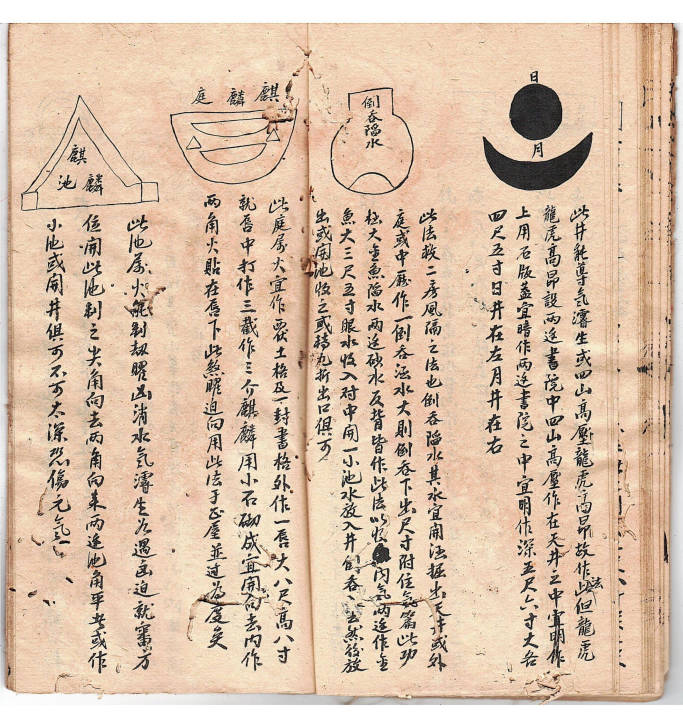 日
月
此井能導氣濤生或四山高壓龍虎高昂故作此法但龍虎
龍虎高昂設兩邊書院中四山高壓作在天井之中宜明作
上用石版盖宜暗作兩邊書院之中宜明作深五尺六寸大各
四尺五寸日井在左月井在右
倒吞陷水
此法救二房風隔之法也倒吞陷水其水宜開溝掘出天井或外
庭或中廳作一倒吞涵水大則倒吞下出尺寸附住此功
極大金魚陷水兩邊砂水反背皆作此法以收內氣兩邊作金
魚大三尺五寸眼水收入對中開一小池水放入井倒吞去然後放
出或開池收之或轉九折出口俱可
麒麟庭
此庭屬火宜作覆土格及一封書格外作一唇大八尺高八寸
就唇中打作三截作三个麒麟用小石砌成宜開向去內作
兩角火貼在唇下此煞曜迫向用此法于正屋並过為度矣
麒麟池
此池屬火能制劫曜凶消水氣濤生名遇凶迫就當方
位開此池制之尖角向去兩角向來兩邊池角平者或作
小池或開井俱可不可太深恐傷元氣